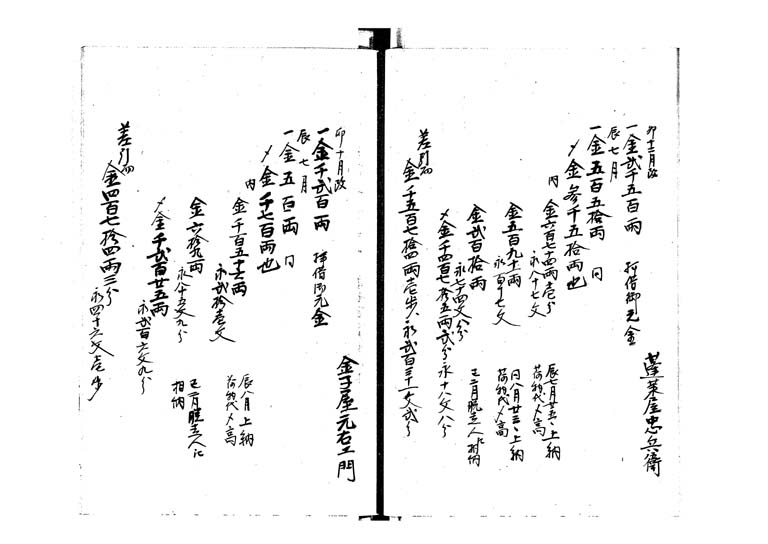 蓬莱屋忠兵衛
卯十二月改
一金弐千五百両 拝借御元金
辰七月
一金五百五拾両 同
〆金参千五拾両也
内
金六百七十四両壱分
永八十七文
辰七月廿五日上納
荷物代〆高
金五百九十両
永百十七文
同八月廿三日上納
荷物代〆高
金弐百拾両
永七十四文八分
巳二月 相納
〆金千四百七拾五両弐分永十八文八分
差引而
金千五百七拾四両壱歩永弐百三十一文弐分
金子屋元右エ門
卯十月改
一金千弐百両 拝借御元金
辰七月
一金五百両 同
〆金千七百両也
内
金千百五十六両
永弐拾壱文
辰八月上納
荷物代〆高
金六拾九両
永八十五文九分
巳二月 相納
〆金千弐百廿五両
永弐百六文九分
差引而
金四百七拾四両三分
永四十三文壱歩